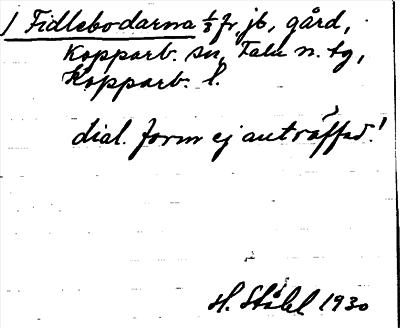 1 Fidlebodarna 1/3 fr, jb, gård,
Kopparb. sn, Falu n. tg,
Kopparb. l.
dial. form ej anträffad!
H. Ståhl 1930